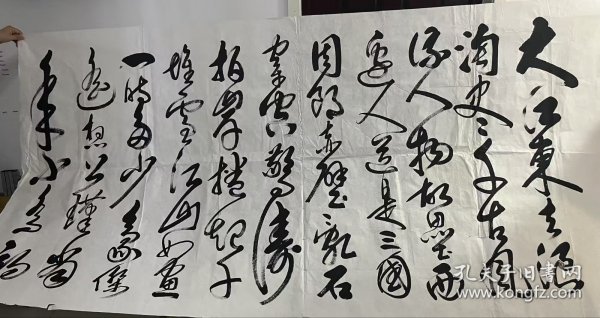 大江東去浪
淘尽千古風
流人物故壘西
邊人道是三國
周郎赤壁亂石
穿空驚濤
拍岸捲起千
堆雪江山如畫
一時多少豪傑
遙想公瑾當
年小喬初
孔夫子旧书网
www.kongfz.com